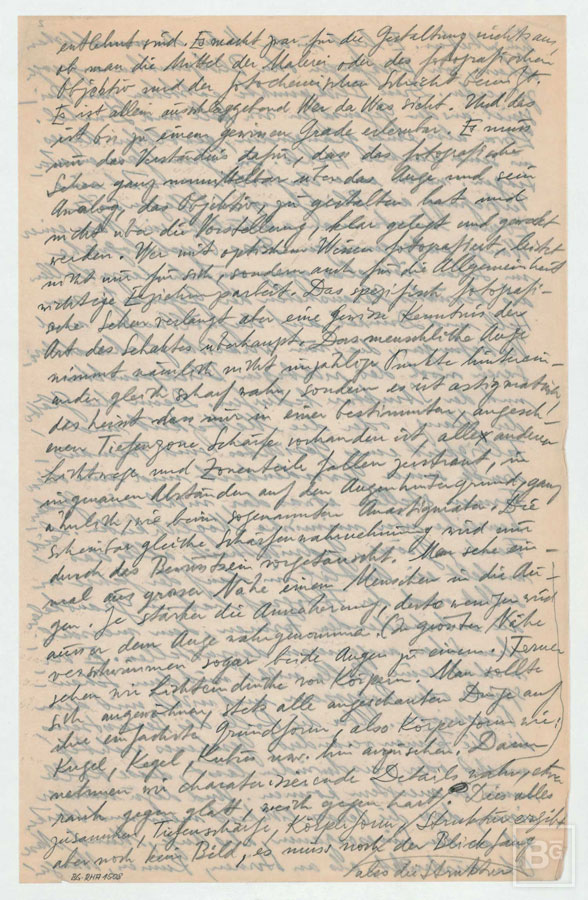 2
entlehnt sind. Es macht zwar für die Gestaltung nichts aus,
ob man die Mittel der Malerei oder des fotografischen
Objektivs und der fotochemischen Schicht benutzt.
Es ist allein ausschlaggebend Wer da Was sieht. Und das
ist bis zu einem gewissen Grade erlernbar. Es muss
nun das Verständnis dafür, dass das fotografische
Sehen ganz unmittelbar über das Auge und sein
Analog, das Objektiv, zu gestalten hat und
nicht über die Vorstellung, klar gelegt und geweckt
werden. Wer mit optischem Wissen fotografiert, leistet
nicht nur für sich, sondern auch für die Allgemeinheit
wichtige Das spezifisch fotografi-
sche Sehen verlangt aber eine gewisse Kenntnis der
Art des Sehaktes überhaupt. Das menschliche Auge
nimmt nämlich nicht unzählige Punkte hinterein-
ander gleich scharf wahr, sondern es ist astigmatisch,
das heisst dass nur in einer bestimmten, angeseh-
enen Tiefenzone Schärfe vorhanden ist, alle anderen
Lichtwege und Zonenteile fallen zerstreut, in
ungenauen Abständen auf den Augenhintergrund, ganz
ähnlich, wie beim sogenannten Anastigmaten. Die
scheinbar gleiche Schärfenwahrnehmung wird nur
durch das Bewusstsein vorgetäuscht. Man sehe ein-
mal aus grosser Nähe einem Menschen in die Au-
gen. Je stärker die Annäherung, desto weniger wird
ausser dem Auge wahrgenommen. (In grösster Nähe
verschwimmen sogar beide Augen zu einem.) Ferner
sehen wir Lichteindrücke von Körpern. Man sollte
sich angewöhnen, stets alle angeschauten Dinge auf
ihre einfachste Grundform, also Körperform wie:
Kugel, Kegel, Kubus usw. hin anzusehen. Dann
nehmen wir charakterisierende Details wahr, etwa
rauh gegen glatt, weich gegen hart. Dies alles
zusammen, Tiefenschärfe, Körperform, Struktur ergibt
aber noch kein Bild, es muss noch der Blickfang
also die Struktur
BG-RHA 1508
BG